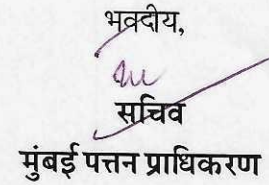 भवदीय,
सचिव
मुंबई पत्तन प्राधिकरण